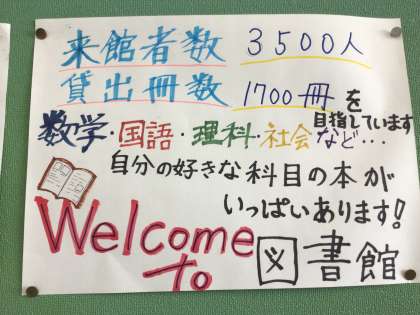 来館者数 3500人
貸出冊数 1700冊を
目指しています
数学・国語・理科・社会など…
自分の好きな科目の本が
いっぱいあります!
Welcome
to 図書館